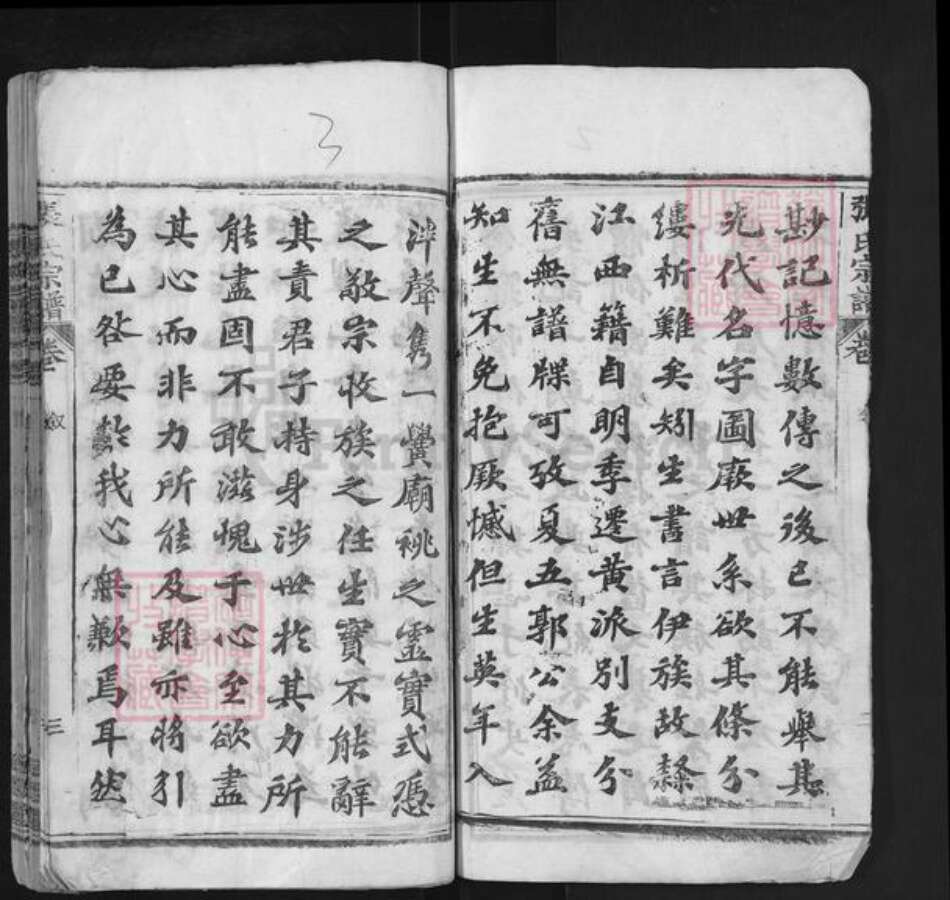 張氏宗譜
卷
尠記憶數傳之後已不能舉其
先代名字圖厥世系欲其條分
縷析難矣矧生書言伊族故隸
江西籍自明季遷黃派別支分
舊無譜牒可攷夏五郭公余益
知生不免抱厥憾但生英年入
泮聲雋一黌廟祧之靈實式憑
之敬宗收族之任生實不能辭
其責君子持身涉世於其力所
能盡固不敢滋愧于心至欲盡
其心而非力所能及雖亦將引
為已咎要於我心無歉焉耳然
宗譜
卷
敘
三
3